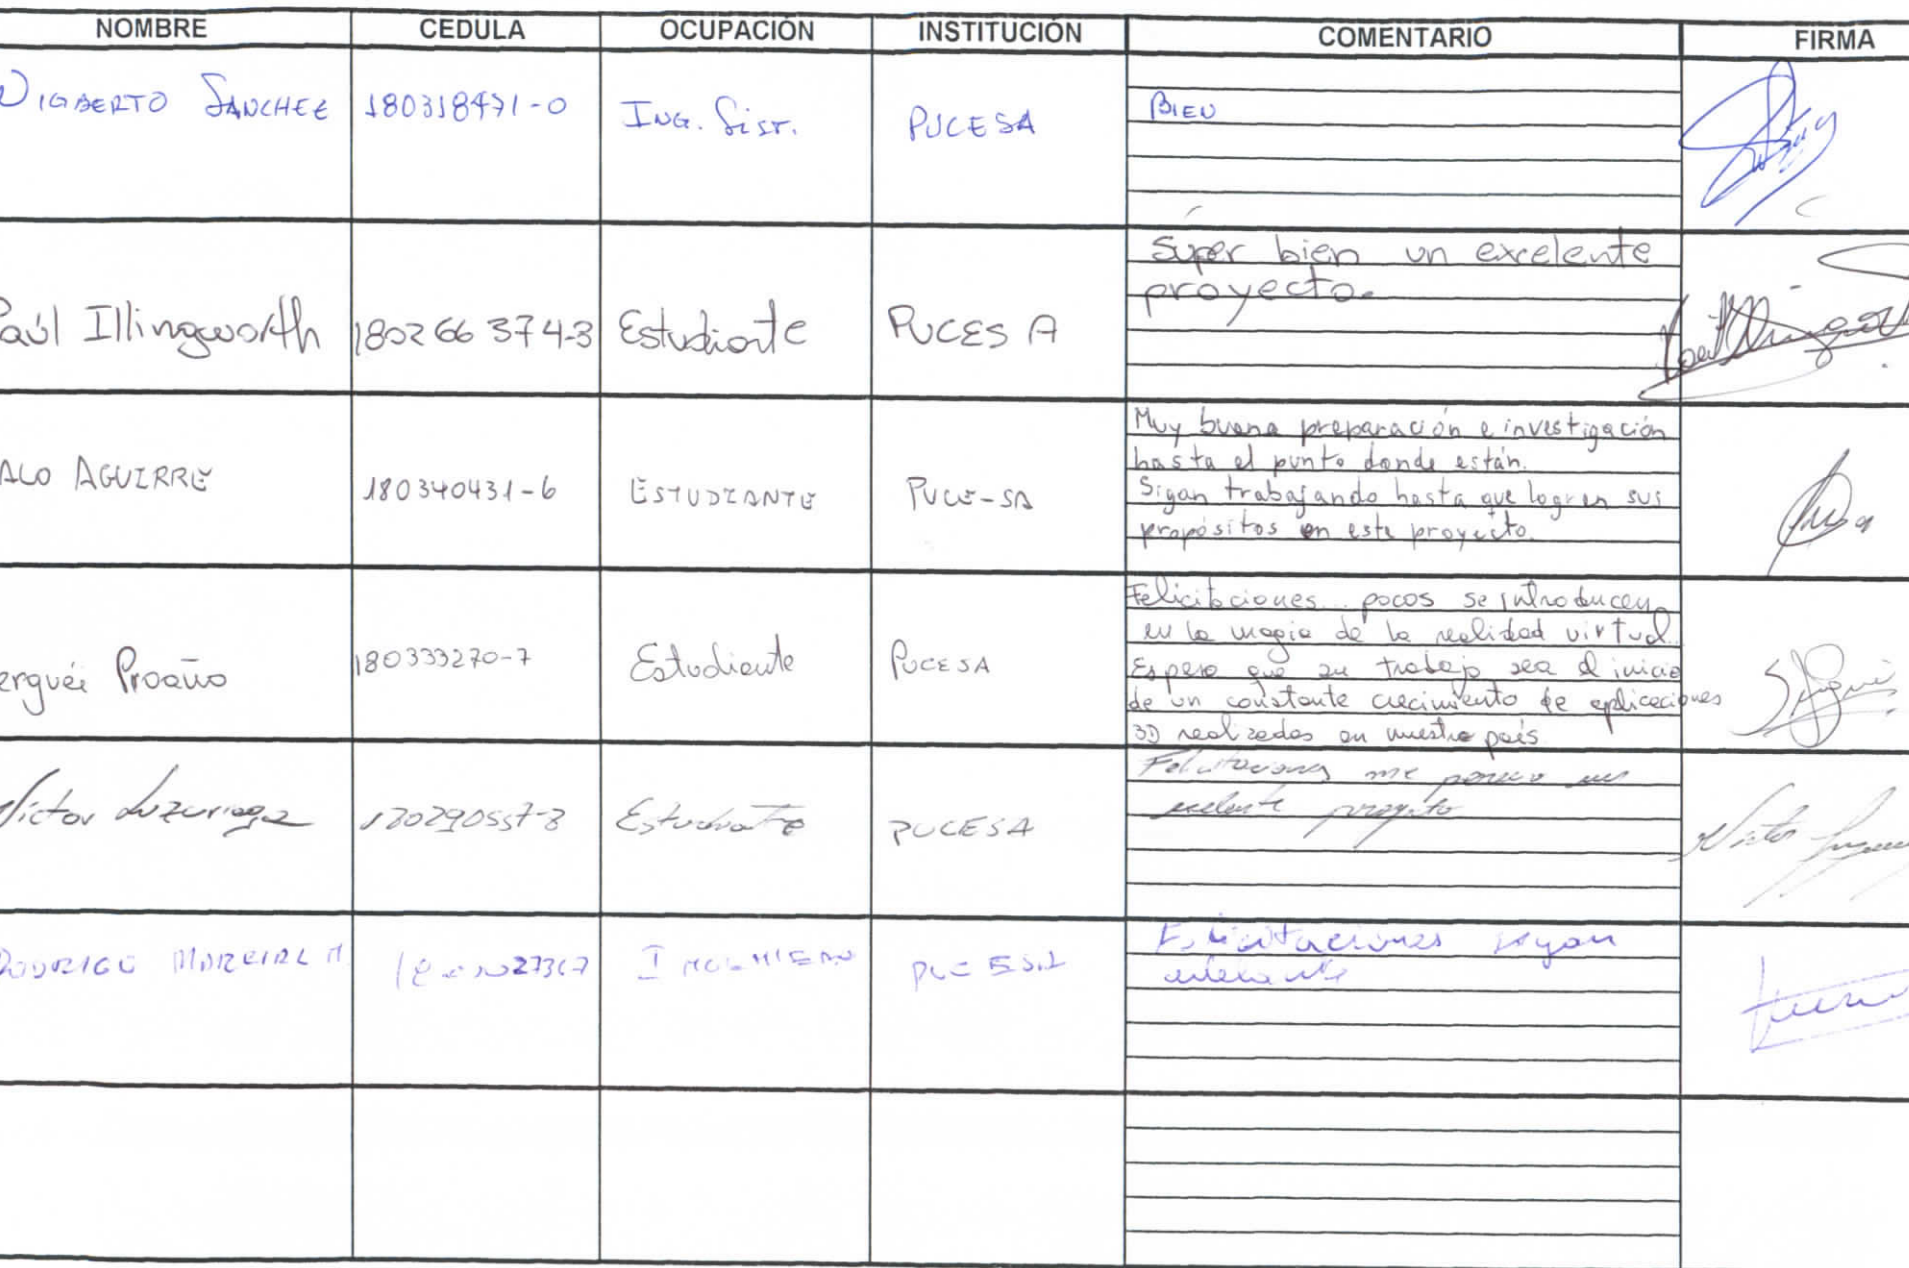 NOMBRE CEDULA OCUPACIÓN INSTITUCIÓN COMENTARIO FIRMA
WIGBERTO SANCHEZ 180318471-0 ING. SIST. PUCESA BIEN
Paúl Illingworth 180266374-3 Estudiante PUCESA
Súper bien un excelente
proyecto.
ALO AGUIRRE 180340431-6 ESTUDIANTE PUCE-SA
Muy buena preparación e investigación
hasta el punto donde están.
Sigan trabajando hasta que logren sus
propósitos en este proyecto.
erguéi Proaño 180333270-7 Estudiante PUCESA
Felicitaciones... pocos se introducen
en la magia de la realidad virtual.
Espero que su trabajo sea el inicio
de un constante crecimiento de aplicaciones
3D realizadas en nuestro país
Víctor Luzuriaga Estudiante PUCESA
Felicitaciones me parece un
excelente proyecto
RODRIGO INGENIERO PUCESA
Felicitaciones sigan
adelante